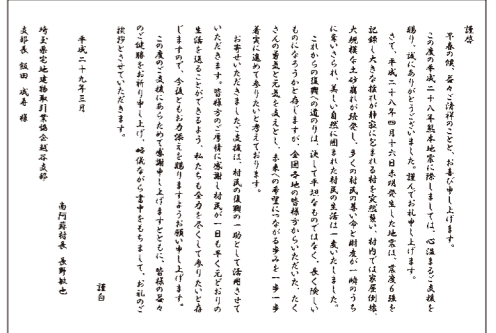 謹啓
早春の候、益々ご清祥のことと、お喜び申し上げます。
この度の平成二十八年熊本地震に際しましては、心温まるご支援を
賜り、誠にありがとうございました。謹んでお礼申し上げます。
さて、平成二十八年四月十六日未明発生した地震は、震度６強を
記録し大きな揺れが静寂に包まれる村を突然襲い、村内では家屋倒壊、
大規模な土砂崩れが発生し、多くの村民の尊い命と財産が一瞬のうち
に奪いさられ、美しい自然に囲まれた村民の生活は一変いたしました。
これからの復興への道のりは、決して平坦なものではなく、長く険しい
ものになろうかと存じますが、全国各地の皆様方からいただいた、たく
さんの勇気と元気を支えとし、未来への希望につながる歩みを一歩一歩
着実に進めて参りたいと考えております。
お寄せいただきましたご支援は、村民の復興の一助として活用させて
いただきます。皆様方のご厚情に感謝し村民が一日も早く元どおりの
生活を送ることができるよう、私たちも全力を尽くして参りたいと存
じますので、今後ともお力添えを賜りますようお願い申し上げます。
この度のご支援にあらためて感謝申し上げますとともに、皆様の益々
のご健勝をお祈り申し上げ、略儀ながら書中をもちまして、お礼のご
挨拶とさせていただきます。
謹白
平成二十九年三月
南阿蘇村長 長野敏也
埼玉県宅地建物取引業協会越谷支部
支部長 飯田 成寿 様